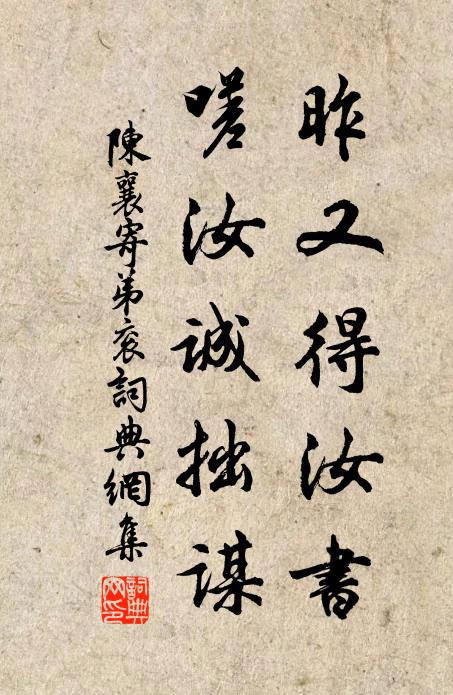 昨又得汝書
嗟汝誠拙謀
陳襄寄弟衮詞典網集
詞典網印